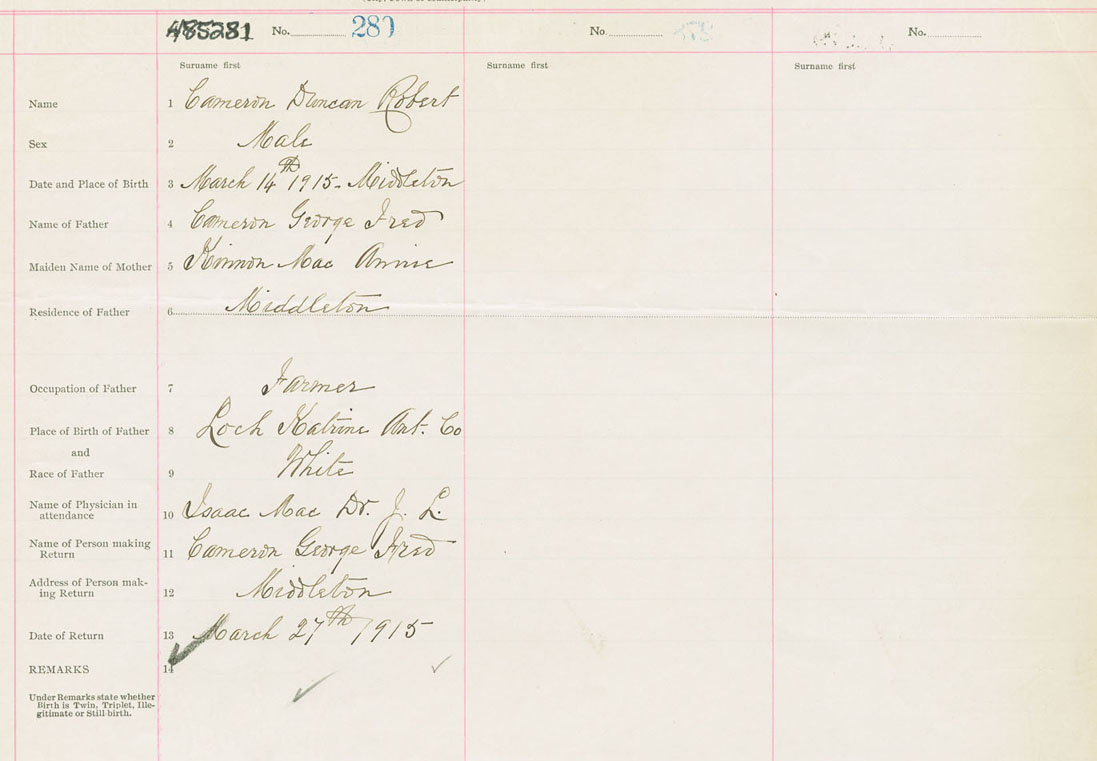 485281 No. 280 No. No.
Surname first Surname first Surname first
Name 1 Cameron Duncan Robert
Sex 2 Male
Date and Place of Birth 3 March 14th 1915. Middleton
Name of Father 4 Cameron George Fred
Maiden Name of Mother 5 Kinnon Mac Annie
Residence of Father 6 Middleton
Occupation of Father 7 Farmer
Place of Birth of Father 8 Loch Katrine Ant. Co
and
Race of Father 9 White
Name of Physician in
attendance 10 Isaac Mac Dr. J. L.
Name of Person making
Return 11 Cameron George Fred
Address of Person mak-
ing Return 12 Middleton
Date of Return 13 March 27th 1915
REMARKS 14
Under Remarks state whether
Birth is Twin, Triplet, Ille-
gitimate or Still-birth.